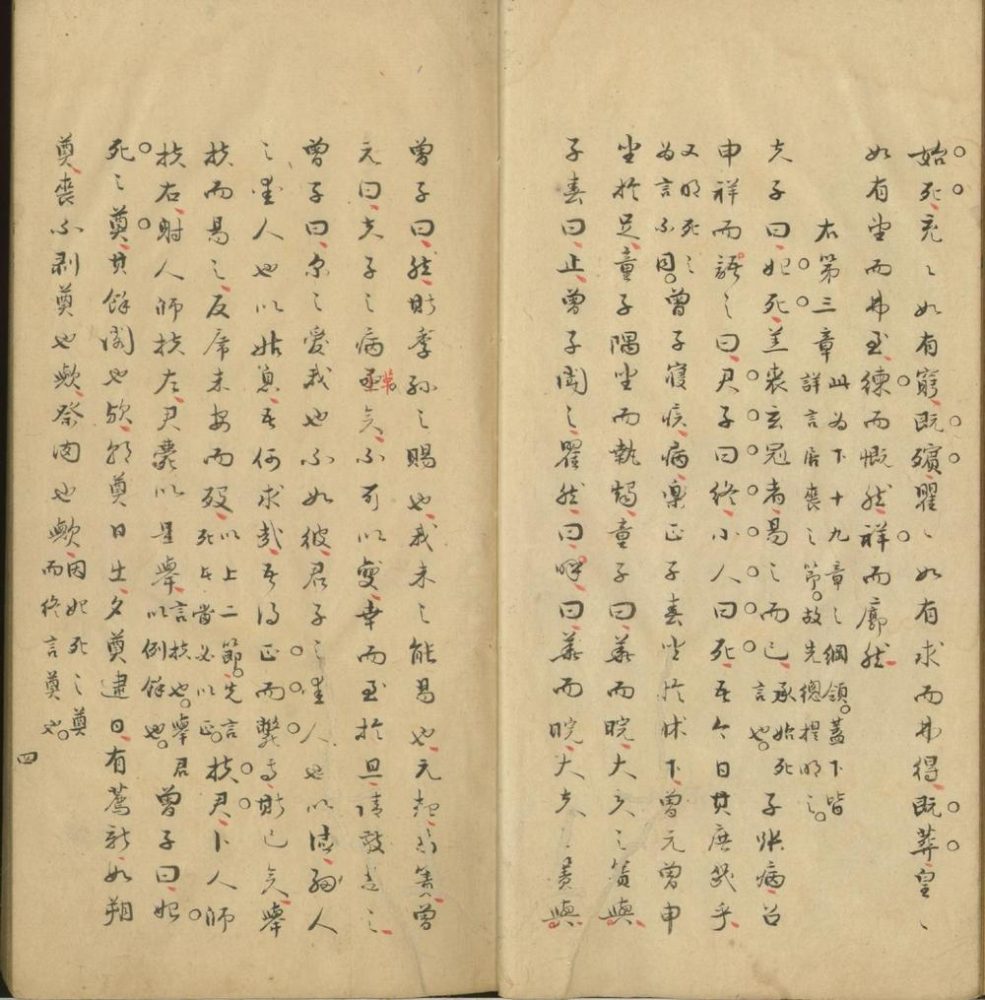 始死充〻如有窮既殯瞿〻如有求而弗得既葬皇〻
如有望而弗至練而慨然祥而廓然
右第三章此為下十九章之綱領蓋下皆詳言居喪之節故先總提明之
夫子曰始死羔裘玄冠者易之而已承始死言也子張病召
申祥而語之曰君子曰終小人曰死吾今日其庶幾乎
又明死之為言不同曾子寝疾病樂正子春坐於牀下曾元曾申
坐於足童子隅坐而執燭童子曰華而睆大夫之簀與
子春曰止曾子聞之瞿然曰呼曰華而睆大夫之簀與
曾子曰然斯季孫之賜也我未之能易也元起易簀曾
元曰夫子之病亟矣不可以變幸而至於旦請敬易之
曾子曰爾之愛我也不如彼君子之愛人也以德細人
之愛人也以姑息吾何求哉吾得正而斃焉斯已矣舉
扶而易之反席未安而歿以上二節先言死者當必以正扶君卜人師
扶右射人師扶左君薨以是舉言扶也舉君以例餘也曾子曰始
死之奠其餘閣也歟朝奠日出夕奠逮日有薦新如朔
奠喪不剥奠也歟祭肉也歟因始死之奠而終言奠也
四